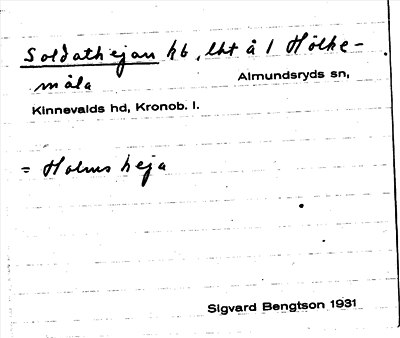 Soldathejan hb, lht å 1 Hölke-
måla Almundsryds sn,
Kinnevalds hd, Kronob. l.
= Holms heja
Sigvard Bengtson 1931